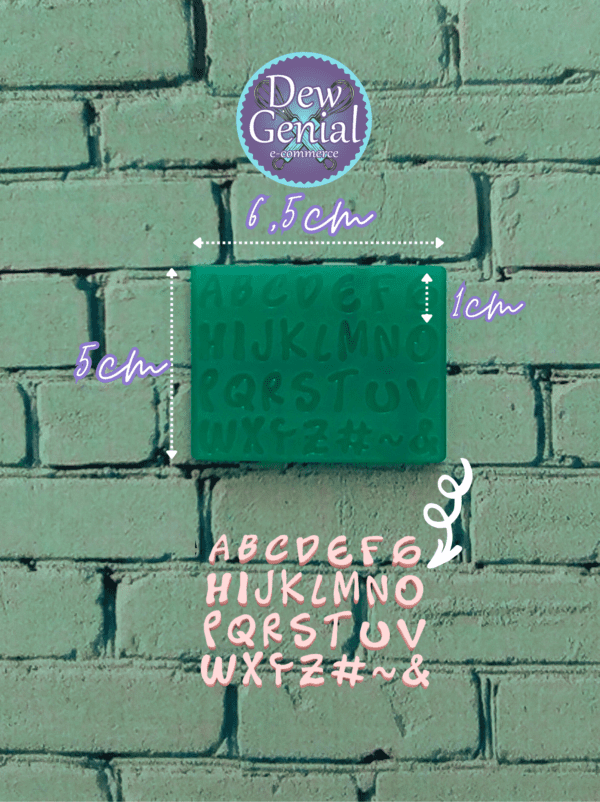 Dew
Genial
e-commerce
6,5cm
1cm
5cm
ABCDEFG
HIJKLMNO
PQRSTUV
WXYZ#~&
ABCDEFG
HIJKLMNO
PQRSTUV
WXYZ#~&